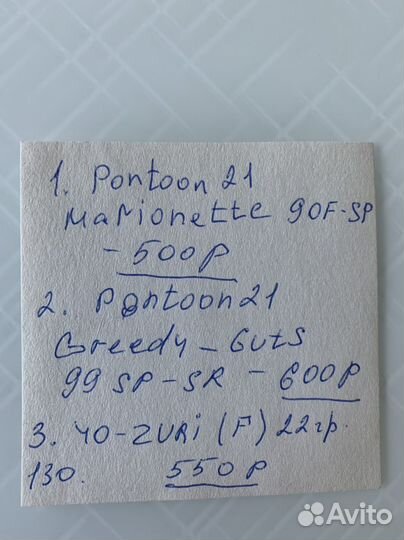 1. Pontoon 21
Marionette 90F-SP
- 500р
2. Pontoon21
Greedy - Guts
99 SP-SR - 600р
3. YO-ZURi (F) 22гр.
130. 550р
Avito